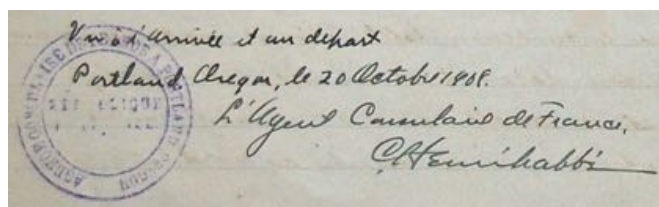 Vu à l'arrivée et au départ
Portland, Oregon, le 20 Octobre 1908.
L'Agent Consulaire de France,
C. Henri Labbé
AGENCE CONSULAIRE DE FRANCE A PORTLAND OREGON